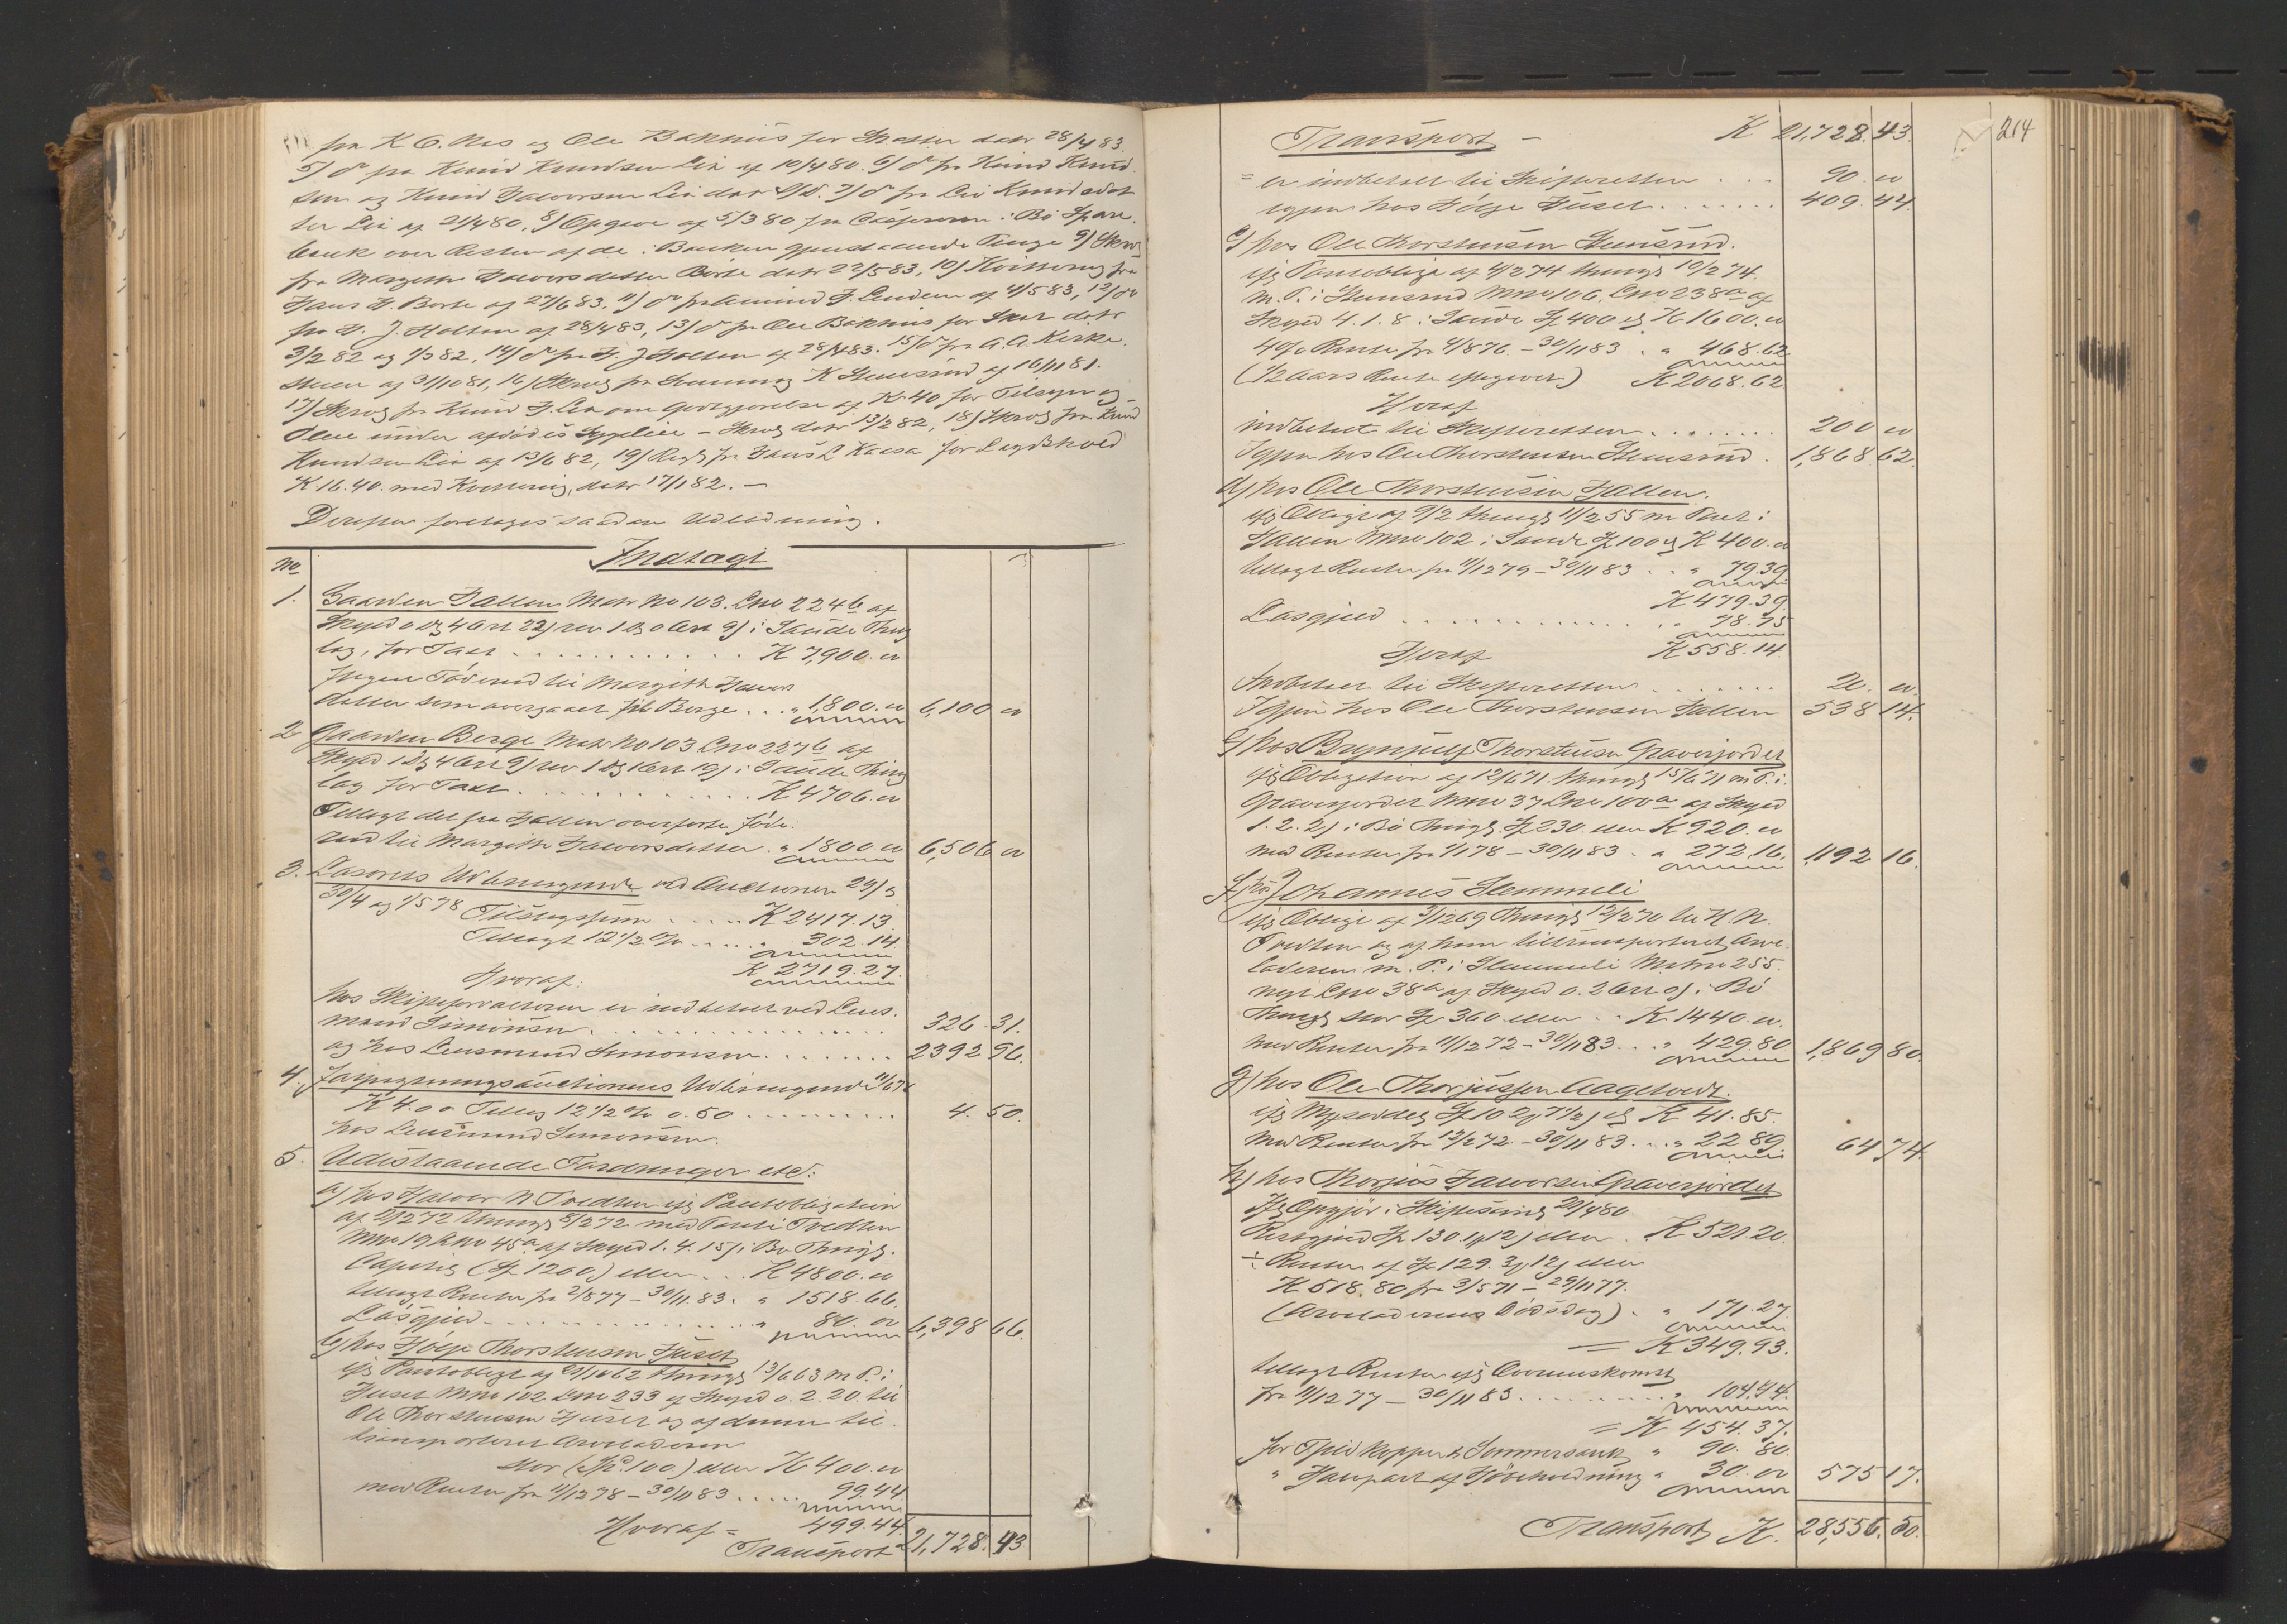 fra K O. Næs og Ole Bakhuus for Skatter datr 28/4 83.
5/ do fra Knud Knudsen Lia af 10/4 80. 6/ do fra Knud Knud
sen og Knud Halvorsen Lia datr S/D. 7/ do fra Liv Knudsdat
ter Lia af 21/4 80, 8/ Opgave af 5/3 80 fra Cassereren i Bø Spare
bank over Resten af de i Banken gjenstaaende Penge 9/ Skriv
fra Margethe Halvorsdatter Børte datr 22/5 83, 10/ Kvittering fra
Hans H. Borte af 27/6 83. 11/ do fra Amund H. Lindem af 4/5 83, 12/ do
fra H. J. Holtan af 28/4 83, 13/ do fra Ole Bakhuus for Skat datr
3/2 82 og 1/3 82, 14/ do fra H. J Holtan af 28/4 83. 15/ do fra A. A. Kirke.
stuen af 31/10 81, 16/ Skriv fra Gunnuug K Slemsrud af 16/11 81.
17/ Skriv fra Knud H. Lia om Godtgjørelse af K. 40 for Tilsyn og
Pleie under afdødes Sygeleie – Skriv datr 13/2 82, 18/ Skriv fra Knud
Knudsen Lia af 13/6 82, 19/ Regn fra Hans L Kaasa for Lægdshved
K. 16. 40. med Kvittering, datr 17/1 82. –
Derefter foretoges saadan Udledning.
No Indtægt
1. Gaarden Hallen Matr No 103. Lno 224b af
Skyld 0 D 4 Ort 22 rev 1 D 0 Ort 9 i Saude Thing
lag, for Taxt . . . K 7,900. "
Ingen Føderaad til Margith Halvors
datter som overgaaet til Berge . . . " 1,800. " 6,100 "
2 Gaarden Berge Matr No 103 Lno 227b af
Skyld 1 D 4 Ort 9 rev 1 D 1 Ort 19 i Saude Thing
lag for Taxt . . . K 4706. "
Tillagt det fra Hallen overførte Føde.
raad til Margith Halvorsdatter . " 1800. " 6,506 "
3. Løsøre Udbringende ved Auctionen 29/ &
30/4 og 1/5 78 Tilslagssum . . . K 2417. 13.
Tillagt 12 1/2 % . . . " 302. 14.
K 2719. 27.
Hvoraf:
hos Skifteforvalteren er indbetalt ved Lens.
mand Simonsen . . . 326. 31.
og hos Lensmand Simonsen . . . 2392 96.
4. Forpagtningsauctionens Udbringende 11/6 78
K 4. 00 Tillæg 12 1/2 % 0. 50 . . . 4. 50.
hos Lensmand Simonsen.
5. Udestaaende Fordringer etc:
a) hos Halvor N Tvedten ifg Pantobligation
af 2/2 72 thingl 8/2 72 med Pant i Tvedten
Mno 19 Lno 45a af Skyld 1. 4. 15 i Bø Thingl.
Capital (Sp 1200) eller . . K 4800. "
tillagt Renter fra 2/8 77 – 30/11. 83. " 1518. 66.
Løsgjæld . . . " 80. " 6,398 66.
b) hos Hølje Thorstensen Huset
ifg Pantobligt af 29/10 62 thingl 13/6 63 m P. i
Huset Mno 102 Lno 233 af Skyld 0. 2. 20. til
Ole Thorstensen Huset og af denne til.
transporteret Arveladeren
stor (Sp. 100) eller K 400. "
med Renter fra 11/12 78 – 30/11 83 . . . 99. 44.
Hvoraf = 499. 44.
Transport 21,728. 43
214
Transport – K 21,728. 43.
= er indbetalt til Skifteretten . . . 90. "
igjen hos Hølje Huset . . . 409. 44.
c) hos Ole Thorstensen Slemsrud.
ifg Pantobliga af 4/2 74 thingl 10/2 74.
m. P. i Slemsrud Mno 106. Lno 238a af
Skyld 4. 1. 8 i Saude Sp 400 eg K 1600. "
4 % Rente fra 4/8 76 – 30/11 83 . " 468. 62
(1/2 Aars Rente eftergiven) K 2068. 62
Hvoraf
indbetalt til Skifteretten . . . 200 "
Igjen hos Ole Thorstensen Slemsrud . 1,868 62.
d) hos Ole Thorstensen Hallen.
ifg Obligt af 9/2 thingl 11/2 55 m Pant i
Hallen Mno 102 i Saude Sp 100 eg K 400. "
tillagt Renter fra 11/12 79 – 30/11 83 . . " 79. 39
K 479. 39.
Løsgjæld . . . " 78. 75
Hvoraf K 558. 14.
Indbetalt til Skifteretten . . . 20. "
Igjen hos Ole Thorstensen Hallen 538 14.
e) hos Brynjulf Thorstensen Graverjordet
ifg Obligation af 12/6 71. thingl 15/6 71 m P. i
Graverjordet Mno 37 Lno 100a af Skyld
1. 2. 2 i Bø Thingl. Sp 230. eller K 920. "
med Renter fra 1/1 78 – 30/11 83 . " 272. 16. 1,192 16.
f) hos Johannes Slemmeli
ifg Obliga af 3/12 69 thingl 12/2 70 til H. N.
Tvedten og af ham tiltransporteret Arve
laderen m. P. i Slemmeli Matrno 255.
nyt Lno 38b af Skyld 0. 2 Ort 0 i Bø
Thingl. stor Sp 360 eller . . K 1440. "
med Renter fra 11/12 72 – 30/11 83 . . " 429. 80 1,869 80.
g) hos Ole Thorjussen Aagetvedt.
ifg Sp 10 2 11 1/2 eg K 41. 85.
med Renter fra 12/2 72 – 30/11 83 . . " 22 89 64 74.
h) hos Thorjus Halvorsen Graverjordet
Ifg Opgjør i Skiftesaml 20/4 80
Restgjæld Sp 130. 1 12 eller . K 521 20.
÷ Renter af Sp 129. 3 12 eller
K 518. 80 fra 3/5 71 – 29/11 77.
(Arveladerens Dødsdag) . " 171. 27
= K 349. 93.
tillagt Renter ifg Overenskomst
fra 11/12 77 – 30/11 83 . . . " 104. 44.
= K 454. 37.
for Kopper & " 90. 80.
" Halvpart af " 30. " 575 17.
Transport K. 28,556. 50.